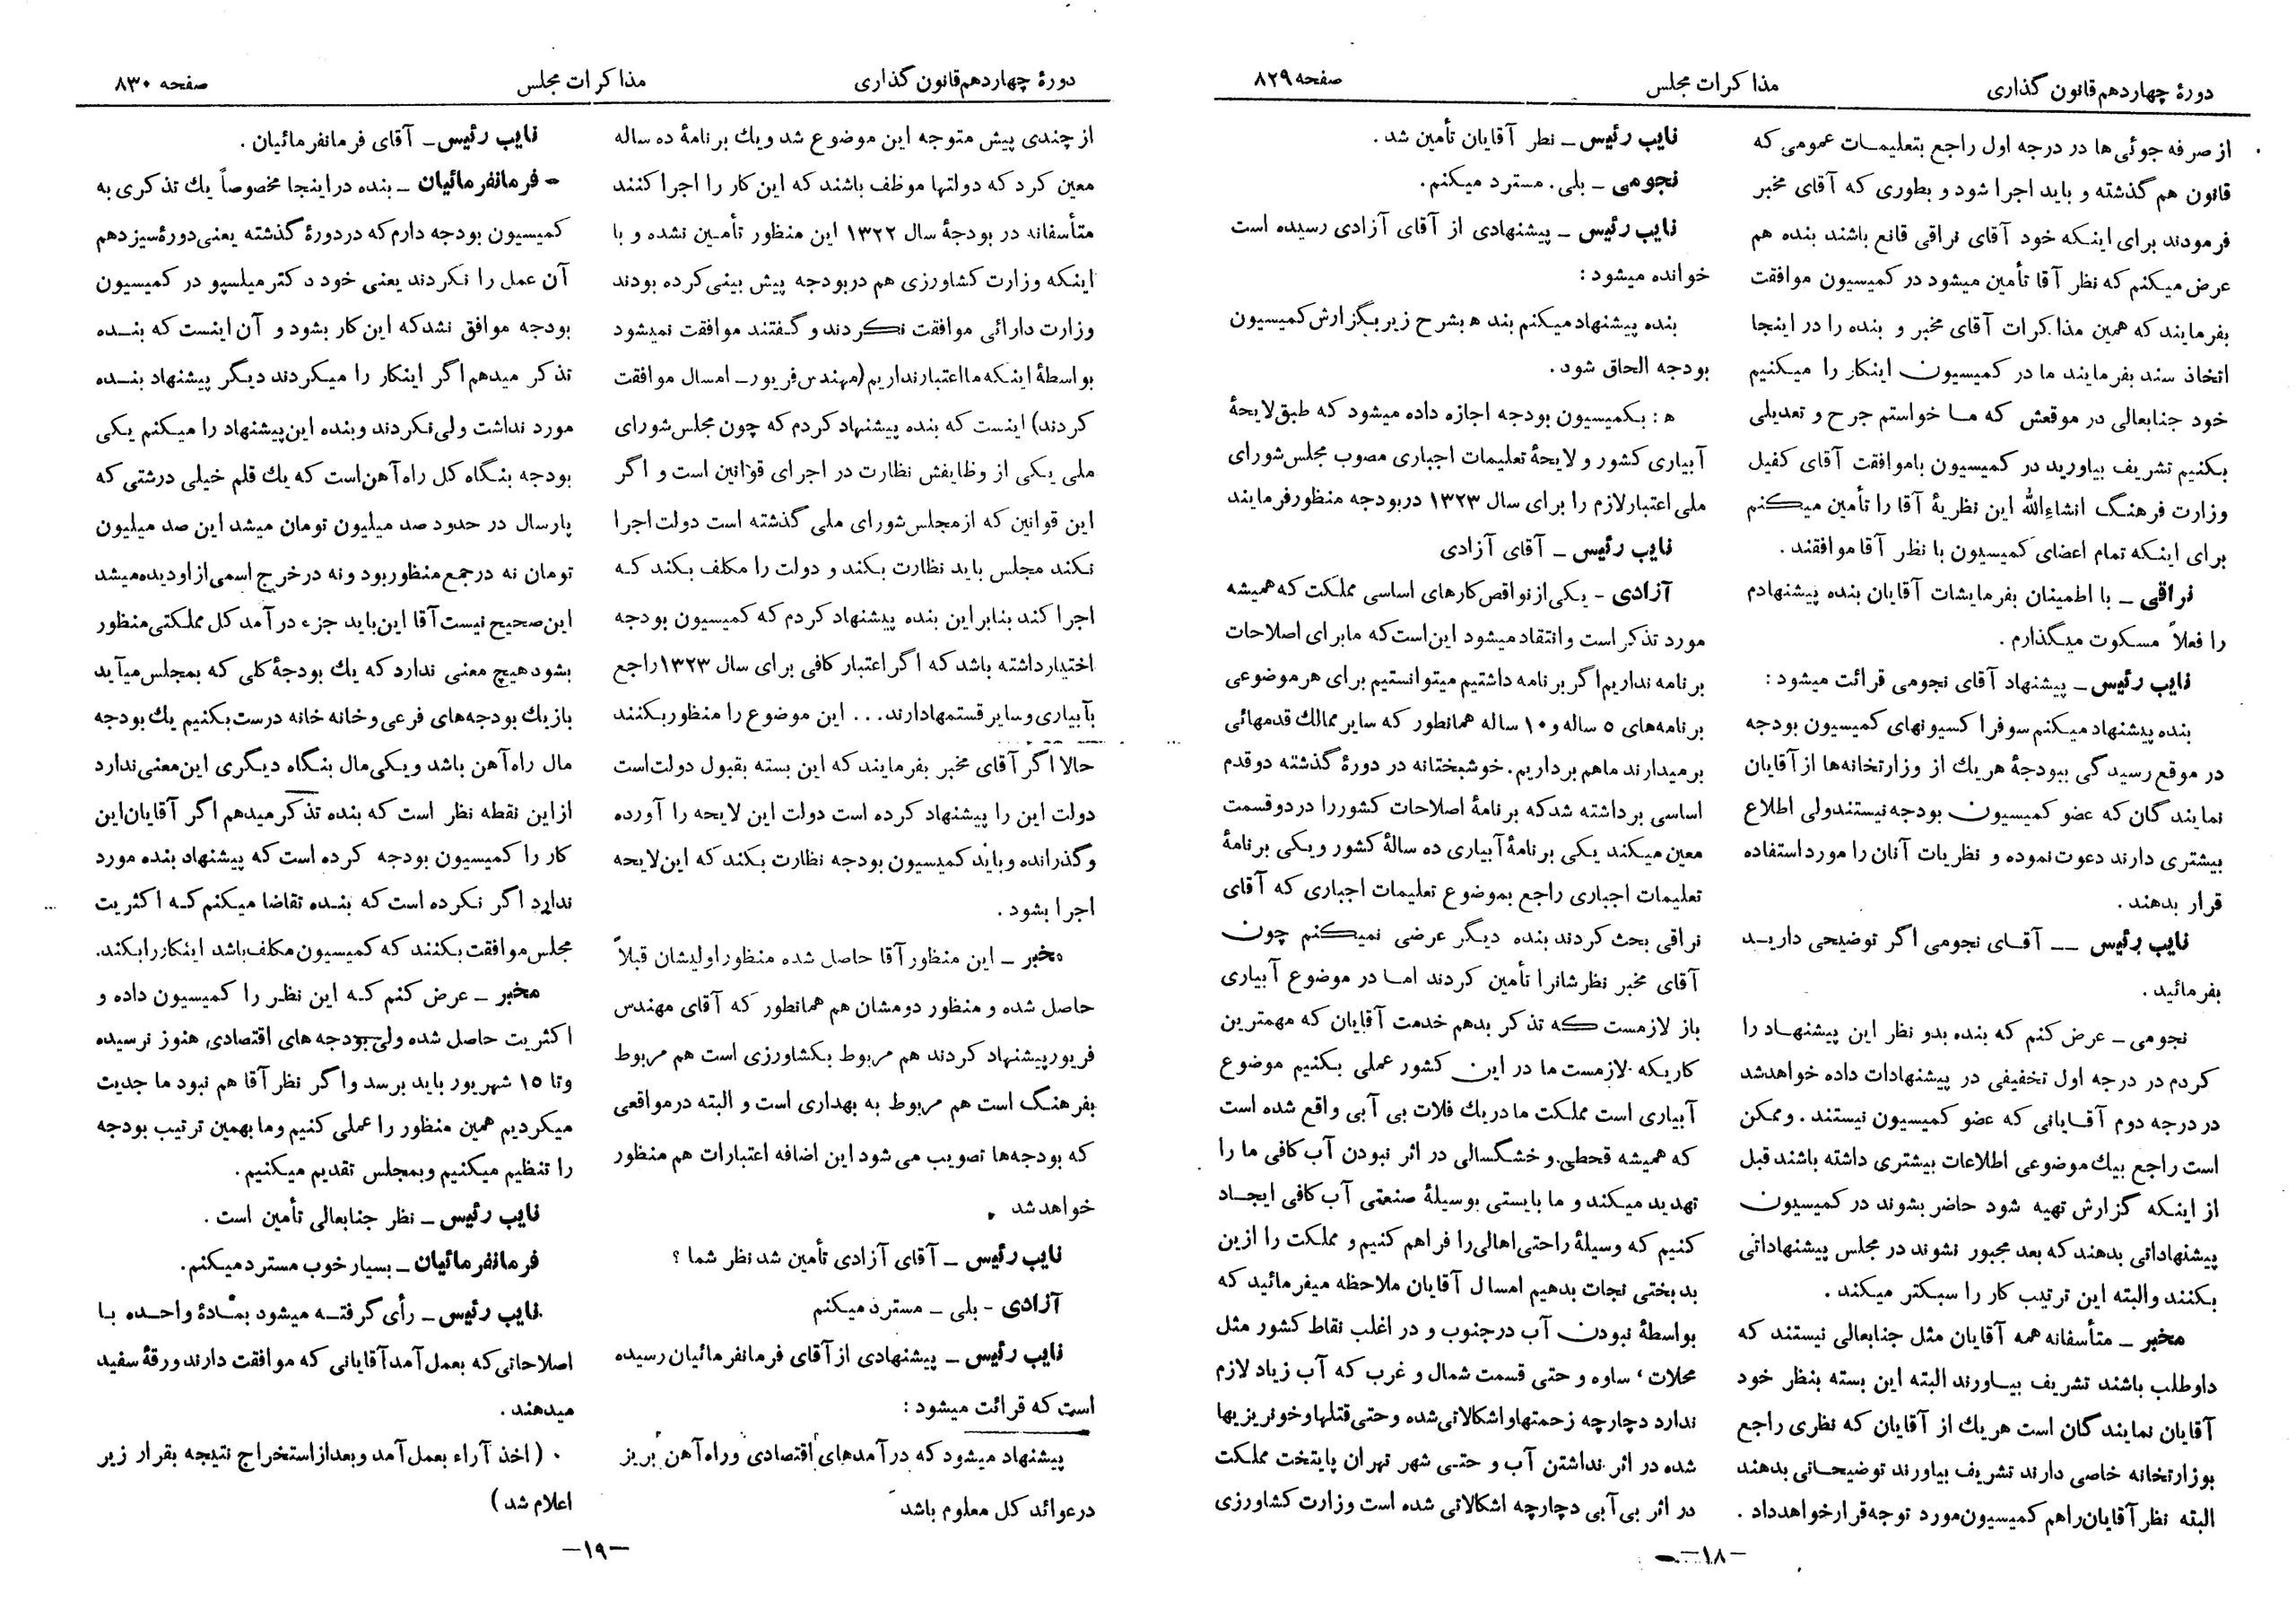 دورهٔ چهاردهم قانون گذاری
مذاکرات مجلس
صفحه ۸۲۹
از صرفه جوئی‌ها در درجه اول راجع بتعلیمات عمومی که
قانون هم گذشته و باید اجرا شود و بطوری که آقای مخبر
فرمودند برای اینکه خود آقای نراقی قانع باشند بنده هم
عرض میکنم که نظر آقا تأمین میشود در کمیسیون موافقت
بفرمایند که همین مذاکرات آقای مخبر و بنده را در اینجا
اتخاذ سند بفرمایند ما در کمیسیون اینکار را میکنیم
خود جنابعالی در موقعش که ما خواستم جرح و تعدیلی
بکنیم تشریف بیاورید در کمیسیون باموافقت آقای کفیل
وزارت فرهنگ انشاءالله این نظریهٔ آقا را تأمین میکنم
برای اینکه تمام اعضای کمیسیون با نظر آقا موافقند .
نراقی ـ با اطمینان بفرمایشات آقایان بنده پیشنهادم
را فعلاً مسکوت میگذارم .
نایب رئیس ـ پیشنهاد آقای نجومی قرائت میشود :
بنده پیشنهاد میکنم سوفراکسیونهای کمیسیون بودجه
در موقع رسیدگی ببودجهٔ هریك از وزارتخانه‌ها از آقایان
نمایندگان که عضو کمیسیون بودجه نیستندولی اطلاع
بیشتری دارند دعوت نموده و نظریات آنان را مورد استفاده
قرار بدهند .
نایب رئیس ــ آقای نجومی اگر توضیحی دارید
بفرمائید .
نجومی ـ عرض کنم که بنده بدو نظر این پیشنهاد را
کردم در درجه اول تخفیفی در پیشنهادات داده خواهدشد
در درجه دوم آقایانی که عضو کمیسیون نیستند . وممکن
است راجع بیك موضوعی اطلاعات بیشتری داشته باشند قبل
از اینکه گزارش تهیه شود حاضر بشوند در کمیسیون
پیشنهاداتی بدهند که بعد مجبور نشوند در مجلس پیشنهاداتی
بکنند والبته این ترتیب کار را سبکتر میکند .
مخبر ـ متأسفانه همه آقایان مثل جنابعالی نیستند که
داوطلب باشند تشریف بیاورند البته این بسته بنظر خود
آقایان نمایندگان است هریك از آقایان که نظری راجع
بوزارتخانه خاصی دارند تشریف بیاورند توضیحاتی بدهند
البته نظر آقایان‌راهم کمیسیون مورد توجه قرار خواهدداد .
نایب رئیس ـ نظر آقایان تأمین شد .
نجومی ـ بلی . مسترد میکنم .
نایب رئیس ـ پیشنهادی از آقای آزادی رسیده است
خوانده میشود :
بنده پیشنهاد میکنم بند ه بشرح زیر بگزارش کمیسیون
بودجه الحاق شود .
ه : بکمیسیون بودجه اجازه داده میشود که طبق لایحهٔ
آبیاری کشور و لایحهٔ تعلیمات اجباری مصوب مجلس شورای
ملی اعتبار لازم را برای سال ۱۳۲۳ در بودجه منظور فرمایند
نایب رئیس ـ آقای آزادی
آزادی - یکی از نواقص کارهای اساسی مملکت که همیشه
مورد تذکر است و انتقاد میشود این است که ما برای اصلاحات
برنامه نداریم اگر برنامه داشتیم میتوانستیم برای هر موضوعی
برنامه‌های ۵ ساله و ۱۰ ساله همانطور که سایر ممالك قدمهائی
برمیدارند ماهم برداریم . خوشبختانه در دورهٔ گذشته دوقدم
اساسی برداشته شد که برنامهٔ اصلاحات کشور را در دو قسمت
معین میکند یکی برنامهٔ آبیاری ده سالهٔ کشور و یکی برنامهٔ
تعلیمات اجباری راجع بموضوع تعلیمات اجباری که آقای
نراقی بحث کردند بنده دیگر عرضی نمیکنم چون
آقای مخبر نظرشانرا تأمین کردند اما در موضوع آبیاری
باز لازمست که تذکر بدهم خدمت آقایان که مهمترین
کاریکه لازمست ما در این کشور عملی بکنیم موضوع
آبیاری است مملکت ما در یك فلات بی آبی واقع شده است
که همیشه قحطی و خشگسالی در اثر نبودن آب کافی ما را
تهدید میکند و ما بایستی بوسیلهٔ صنعتی آب کافی ایجاد
کنیم که وسیلهٔ راحتی اهالی را فراهم کنیم و مملکت را ازین
بدبختی نجات بدهیم امسال آقایان ملاحظه میفرمائید که
بواسطهٔ نبودن آب در جنوب و در اغلب نقاط کشور مثل
محلات ، ساوه و حتی قسمت شمال و غرب که آب زیاد لازم
ندارد دچارچه زحمتها و اشکالاتی شده و حتی قتلها و خونریزیها
شده در اثر نداشتن آب و حتی شهر تهران پایتخت مملکت
در اثر بی آبی دچارچه اشکالاتی شده است وزارت کشاورزی
ـ۱۸ـ
دورهٔ چهاردهم قانون گذاری
مذاکرات مجلس
صفحه ۸۳۰
از چندی پیش متوجه این موضوع شد و یك برنامهٔ ده ساله
معین کرد که دولتها موظف باشند که این کار را اجرا کنند
متأسفانه در بودجهٔ سال ۱۳۲۲ این منظور تأمین نشده و با
اینکه وزارت کشاورزی هم در بودجه پیش بینی کرده بودند
وزارت دارائی موافقت نکردند و گفتند موافقت نمیشود
بواسطهٔ اینکه ما اعتبار نداریم (مهندس فریور ـ امسال موافقت
کردند) اینست که بنده پیشنهاد کردم که چون مجلس شورای
ملی یکی از وظایفش نظارت در اجرای قوانین است و اگر
این قوانین که از مجلس شورای ملی گذشته است دولت اجرا
نکند مجلس باید نظارت بکند و دولت را مکلف بکند که
اجرا کند بنابراین بنده پیشنهاد کردم که کمیسیون بودجه
اختیار داشته باشد که اگر اعتبار کافی برای سال ۱۳۲۳ راجع
بآبیاری و سایر قسمتها دارند . . . این موضوع را منظور بکنند
حالا اگر آقای مخبر بفرمایند که این بسته بقبول دولت است
دولت این را پیشنهاد کرده است دولت این لایحه را آورده
و گذرانده و باید کمیسیون بودجه نظارت بکند که این لایحه
اجرا بشود .
مخبر ـ این منظور آقا حاصل شده منظور اولیشان قبلاً
حاصل شده و منظور دومشان هم همانطور که آقای مهندس
فریور پیشنهاد کردند هم مربوط بکشاورزی است هم مربوط
بفرهنگ است هم مربوط به بهداری است و البته در مواقعی
که بودجه‌ها تصویب می شود این اضافه اعتبارات هم منظور
خواهد شد .
نایب رئیس ـ آقای آزادی تأمین شد نظر شما ؟
آزادی - بلی ـ مسترد میکنم
نایب رئیس ـ پیشنهادی از آقای فرمانفرمائیان رسیده
است که قرائت میشود :
پیشنهاد میشود که درآمدهای اقتصادی و راه آهن بریز
در عوائد کل معلوم باشد
نایب رئیس ـ آقای فرمانفرمائیان .
فرمانفرمائیان ـ بنده در اینجا مخصوصاً یك تذکری به
کمیسیون بودجه دارم که در دورهٔ گذشته یعنی دورهٔ سیزدهم
آن عمل را نکردند یعنی خود دکتر میلسپو در کمیسیون
بودجه موافق نشد که این کار بشود و آن اینست که بنده
تذکر میدهم اگر اینکار را میکردند دیگر پیشنهاد بنده
مورد نداشت ولی نکردند و بنده این پیشنهاد را میکنم یکی
بودجه بنگاه کل راه آهن است که یك قلم خیلی درشتی که
پارسال در حدود صد میلیون تومان میشد این صد میلیون
تومان نه در جمع منظور بود و نه در خرج اسمی از او دیده میشد
این صحیح نیست آقا این باید جزء درآمد کل مملکتی منظور
بشود هیچ معنی ندارد که یك بودجهٔ کلی که بمجلس میآید
باز یك بودجه‌های فرعی و خانه خانه درست بکنیم یك بودجه
مال راه آهن باشد و یکی مال بنگاه دیگری این معنی ندارد
از این نقطه نظر است که بنده تذکر میدهم اگر آقایان این
کار را کمیسیون بودجه کرده است که پیشنهاد بنده مورد
ندارد اگر نکرده است که بنده تقاضا میکنم که اکثریت
مجلس موافقت بکنند که کمیسیون مکلف باشد اینکار را بکند.
مخبر ـ عرض کنم که این نظر را کمیسیون داده و
اکثریت حاصل شده ولی بودجه های اقتصادی هنوز نرسیده
و تا ۱۵ شهریور باید برسد و اگر نظر آقا هم نبود ما جدیت
میکردیم همین منظور را عملی کنیم و ما بهمین ترتیب بودجه
را تنظیم میکنیم و بمجلس تقدیم میکنیم .
نایب رئیس ـ نظر جنابعالی تأمین است .
فرمانفرمائیان ـ بسیار خوب مسترد میکنم.
نایب رئیس ـ رأی گرفته میشود بمادهٔ واحده با
اصلاحاتی که بعمل آمد آقایانی که موافقت دارند ورقهٔ سفید
میدهند .
(اخذ آراء بعمل آمد و بعد از استخراج نتیجه بقرار زیر
اعلام شد )
ـ۱۹ـ